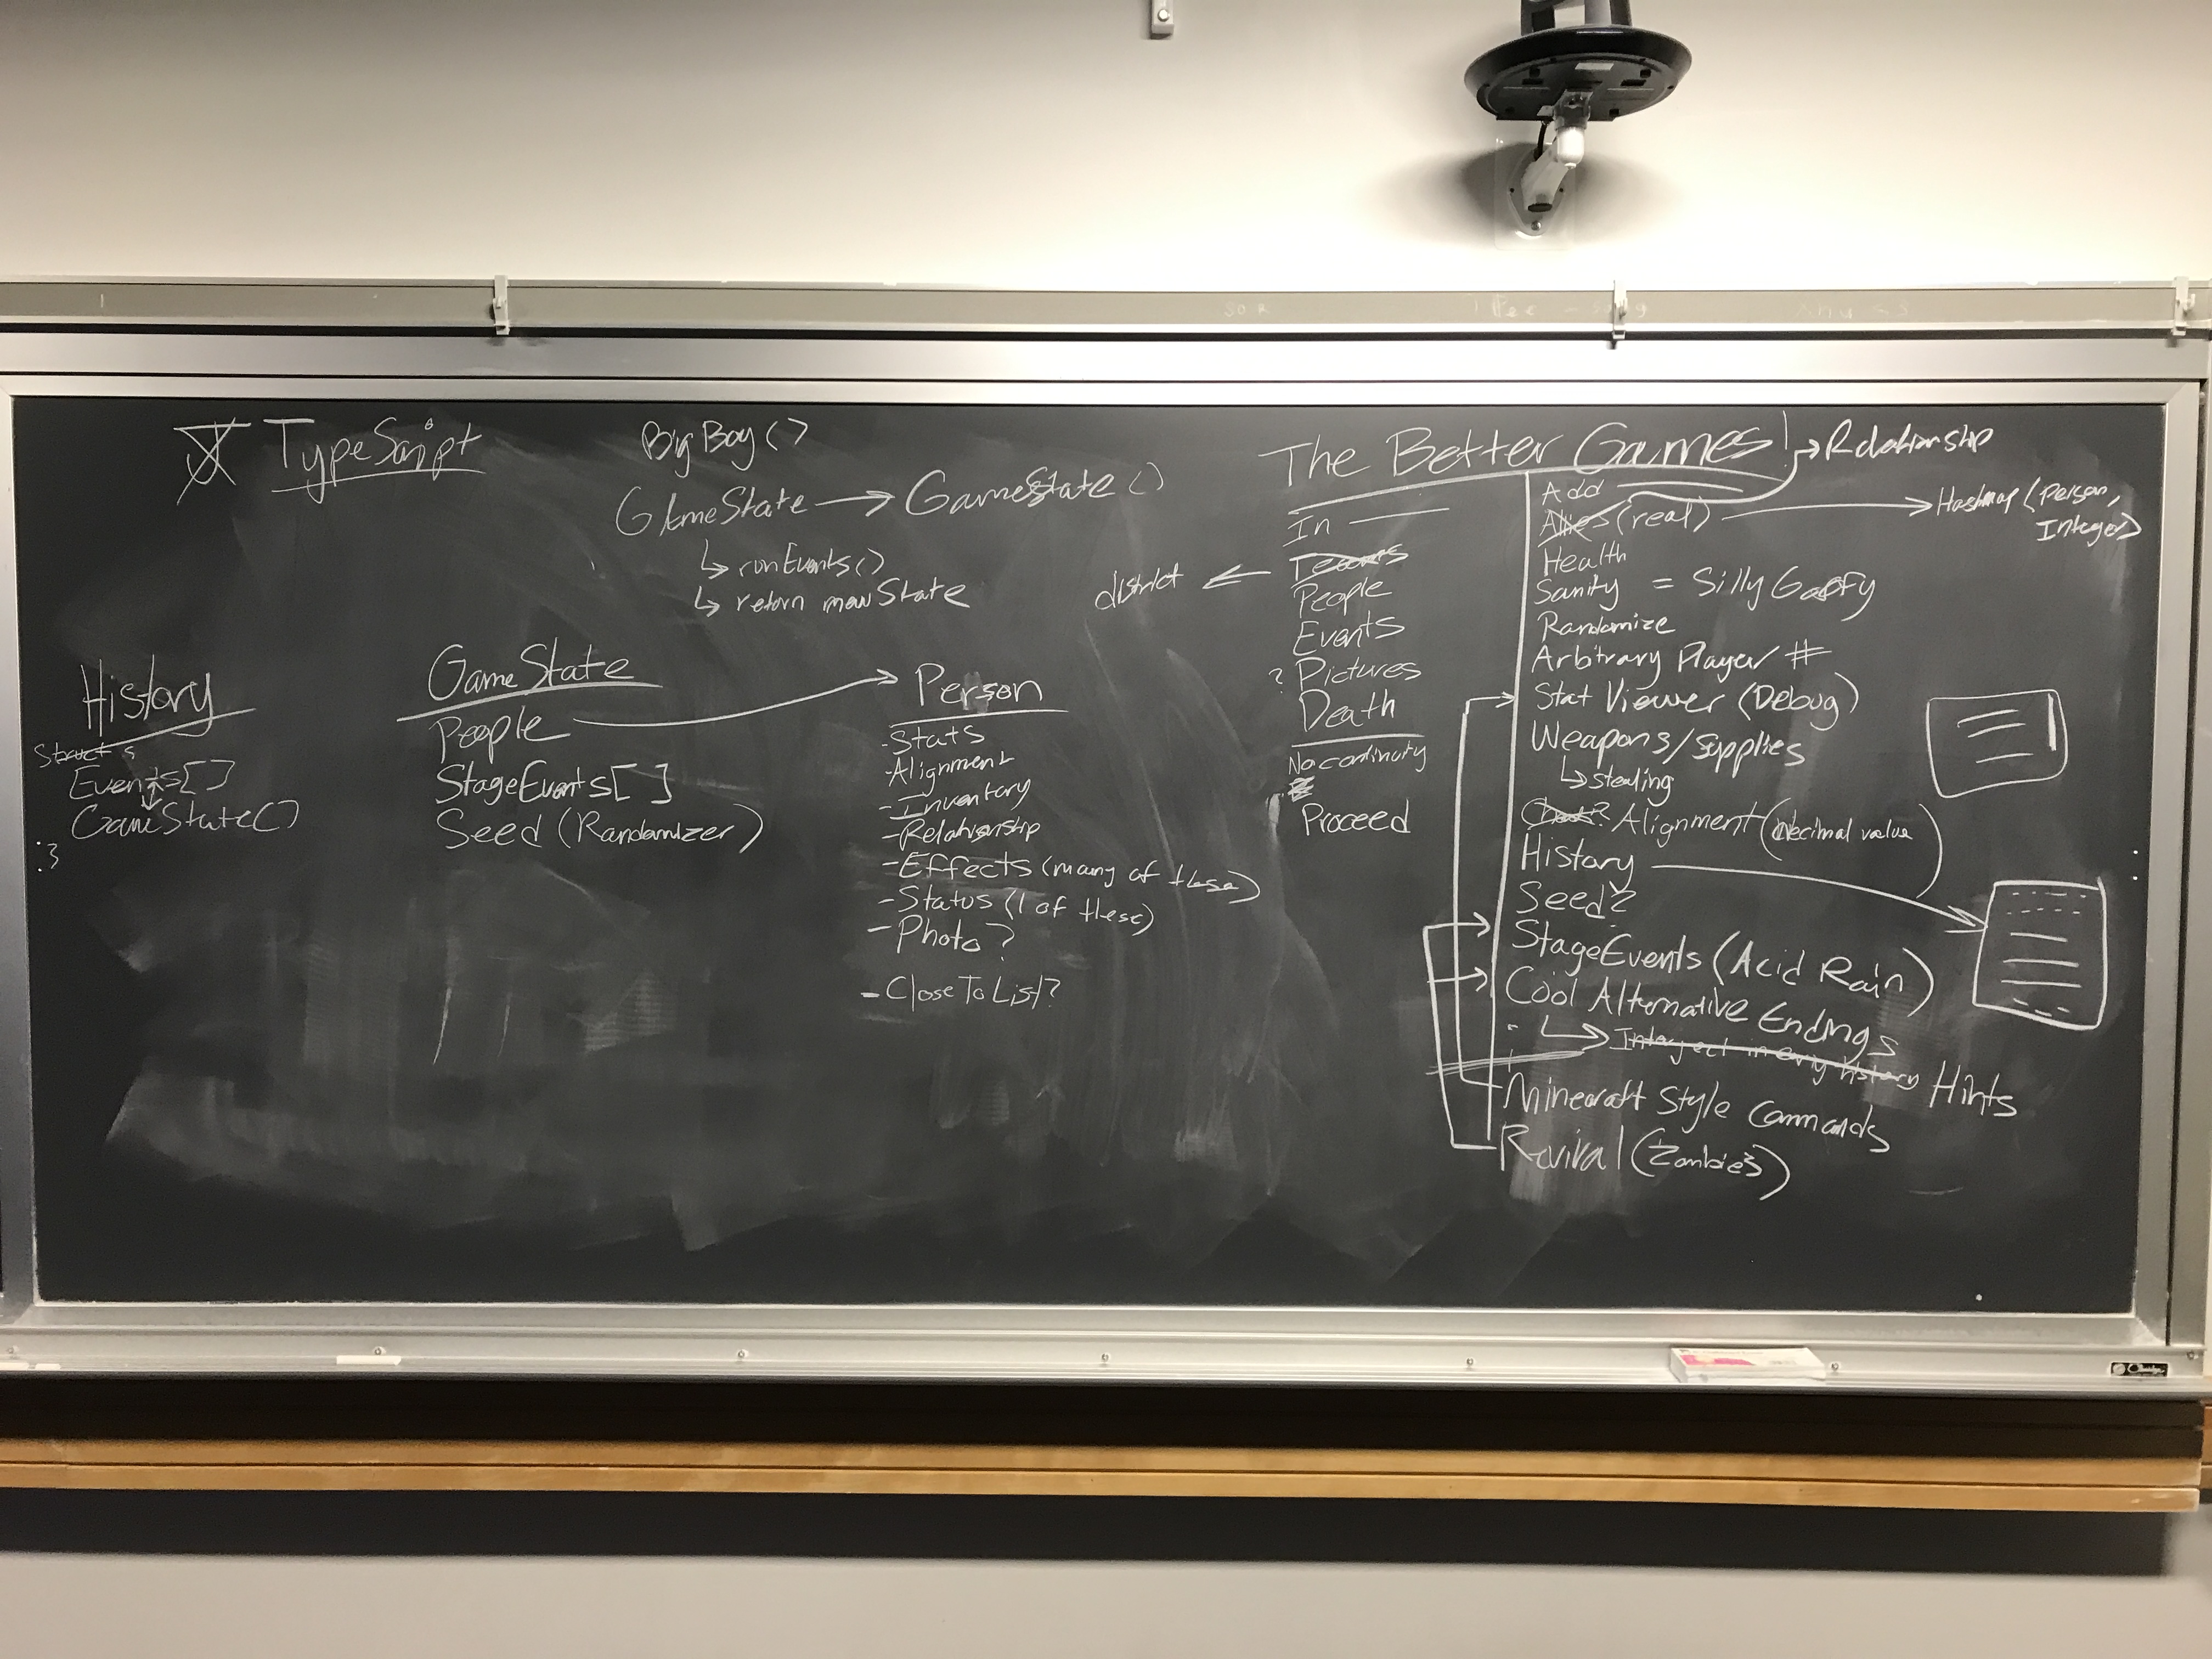 TypeScript
BigBoy()
GameState → GameState()
↳ runEvents()
↳ return newState
History
Events[]
GameState()
:3
GameState
People
StageEvents[]
Seed (Randomizer)
Person
-Stats
-Alignment
-Inventory
-Relationship
-Effects (many of these)
-Status (1 of these)
-Photo?
-CloseToList?
The Better Games!
In
Teams
district
People
Events
? Pictures
Death
No continuity
Proceed
Add
Allies (real)
Relationship
Hashmap (Person,
Integer)
Health
Sanity = Silly Goofy
Randomize
Arbitrary Player #
Stat Viewer (Debug)
Weapons/Supplies
↳ stealing
Alignment (decimal value)
History
Seed?
StageEvents (Acid Rain)
Cool Alternative Endings
↳ Interject in every history Hints
Minecraft Style Commands
Revival (Zombies)